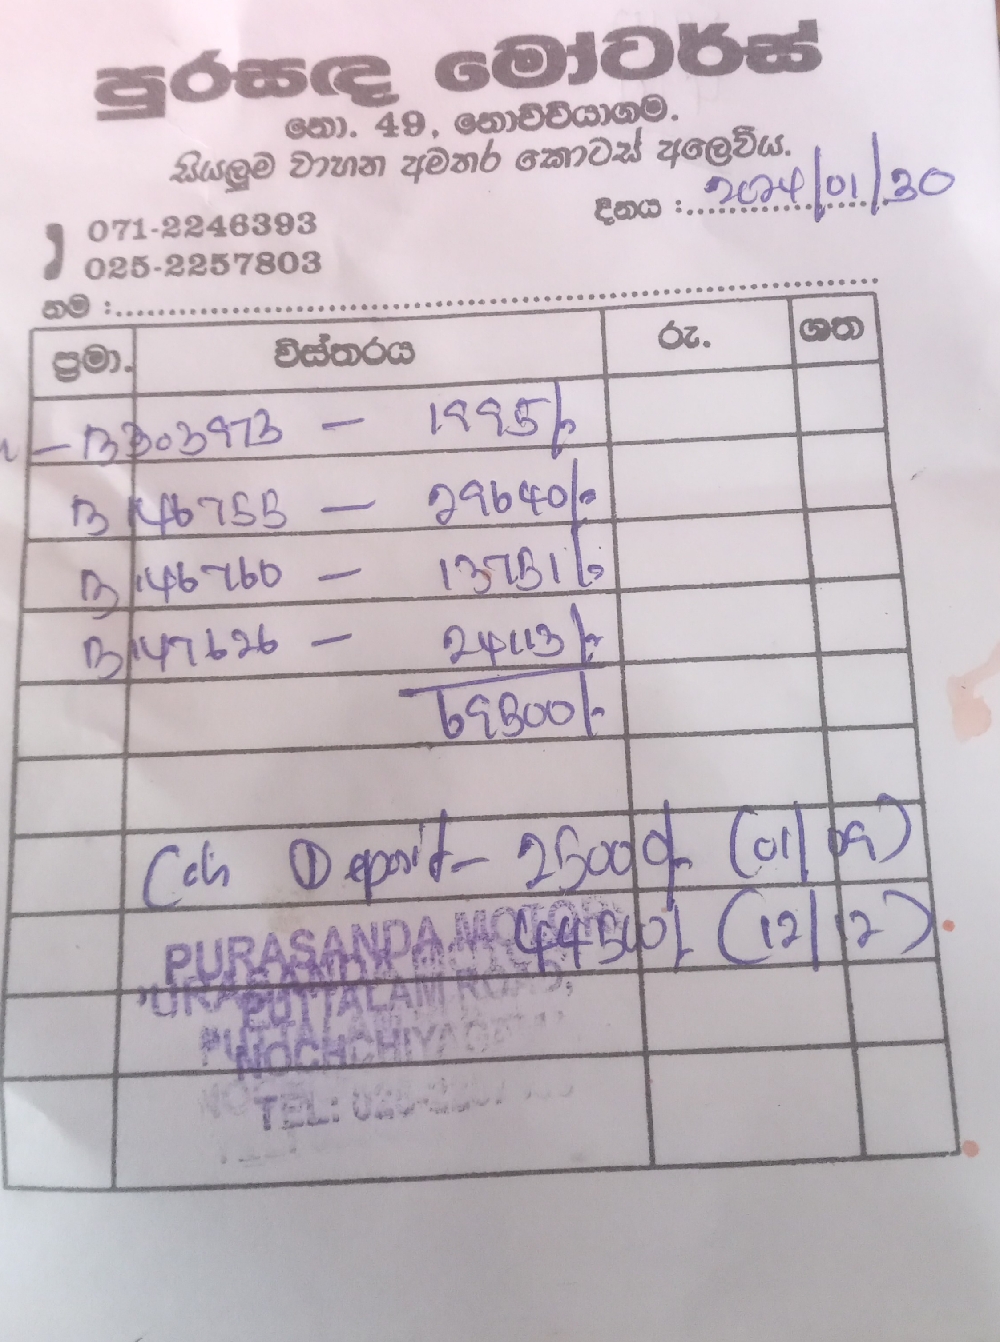 පුරසඳ මෝටර්ස්
නො. 49, නොච්චියාගම.
සියලුම වාහන අමතර කොටස් අලෙවිය.
දිනය : 2024/01/30
071-2246393
025-2257803
නම :
ප්‍රමා. විස්තරය රු. ශත
B303973 — 1995/-
B146755 — 29640/-
B146760 — 13751/-
B147626 — 24113/-
69500/-
Cash Deposit - 25000/- (01/09)
44500/- (12/12)
PURASANDA MOTORS
PUTTALAM ROAD,
NOCHCHIYAGAMA
TEL: 025-2257803